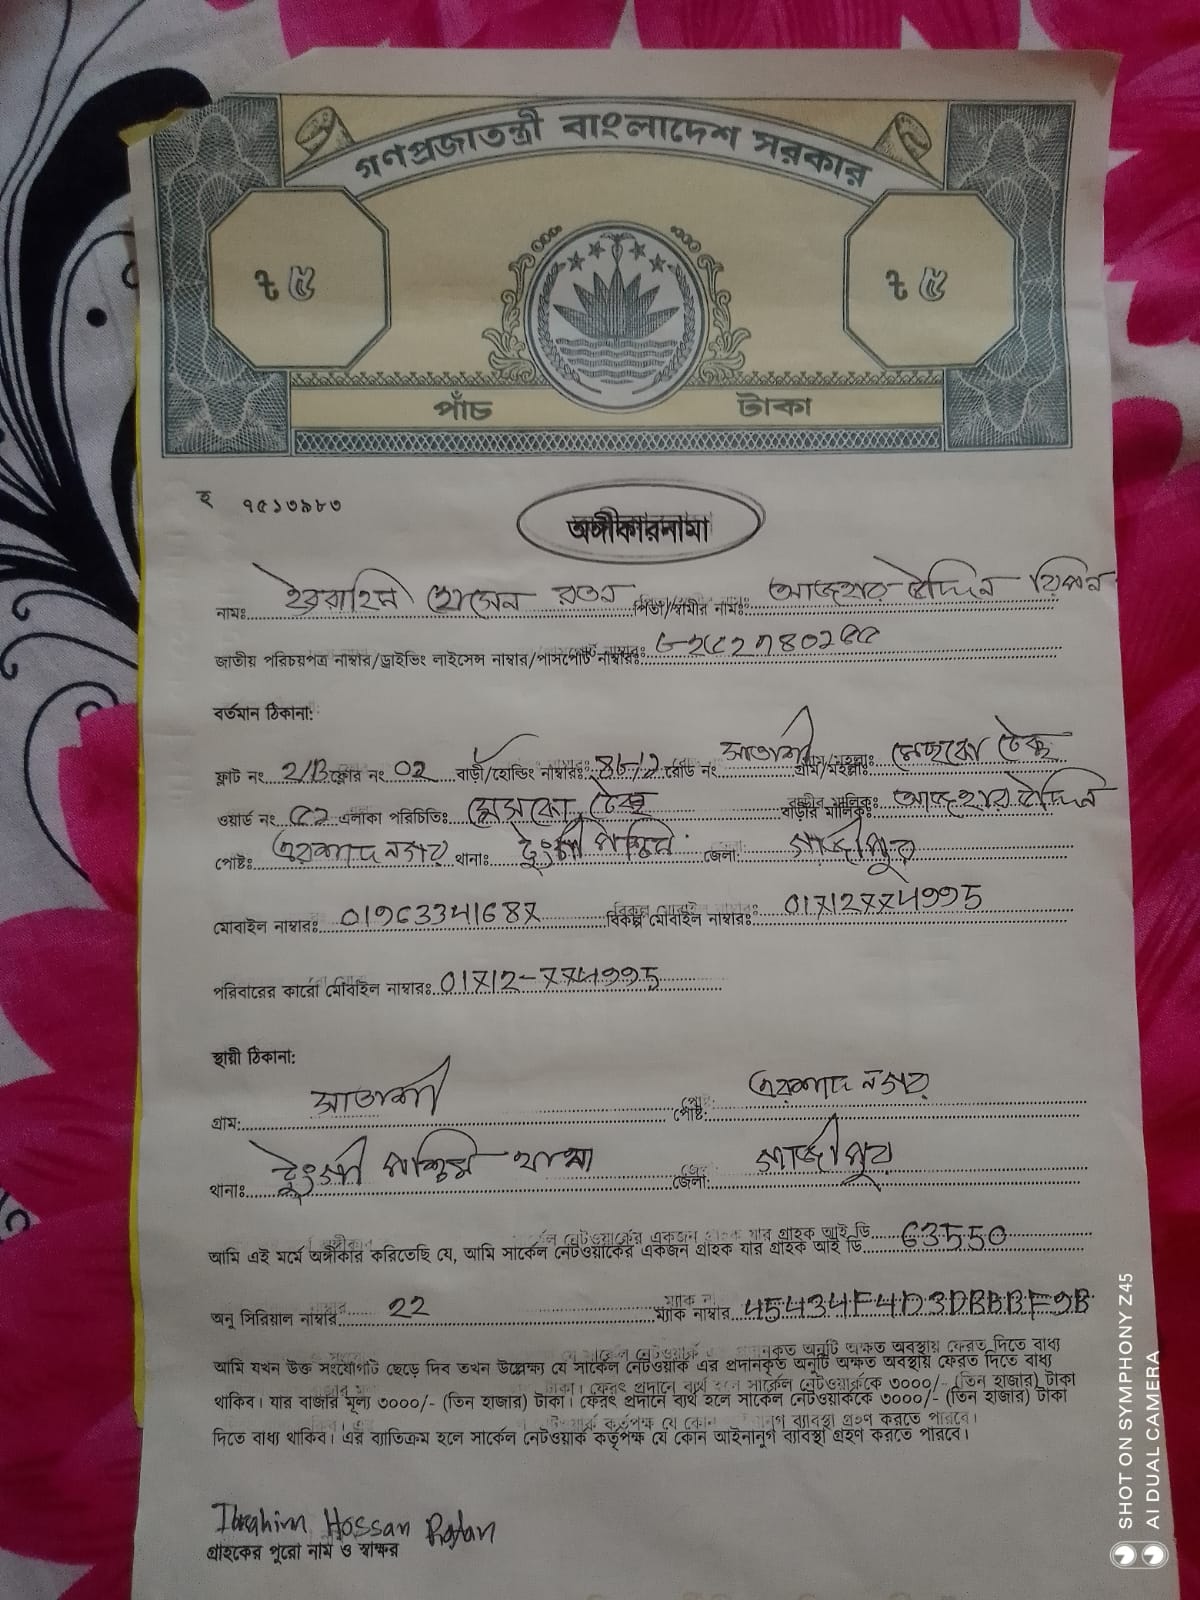 গণপ্রজাতন্ত্রী বাংলাদেশ সরকার
৳ ৫ ৳ ৫
পাঁচ টাকা
হ ৭৫১৩৯৮৩
অঙ্গীকারনামা
নামঃ ইবরাহিম হোসেন রতন পিতা/স্বামীর নামঃ আজহার উদ্দিন রিপন
জাতীয় পরিচয়পত্র নাম্বার/ড্রাইভিং লাইসেন্স নাম্বার/পাসপোর্ট নাম্বারঃ
বর্তমান ঠিকানা:
ফ্লাট নং 2/B ফ্লোর নং 02 বাড়ী/হোল্ডিং নাম্বারঃ রোড নং গ্রাম/মহল্লা:
ওয়ার্ড নং ৫২ এলাকা পরিচিতিঃ বাড়ীর মালিকঃ আজহার উদ্দিন
পোষ্টঃ এরশাদ নগর থানাঃ টংগী পশ্চিম জেলা: গাজীপুর
মোবাইল নাম্বারঃ 01963341687 বিকল্প মোবাইল নাম্বারঃ 01712774995
পরিবারের কারো মোবাইল নাম্বারঃ 01712-774995
স্থায়ী ঠিকানা:
গ্রাম: পোষ্ট: এরশাদ নগর
থানাঃ টংগী পশ্চিম থানা জেলা: গাজীপুর
আমি এই মর্মে অঙ্গীকার করিতেছি যে, আমি সার্কেল নেটওয়ার্কের একজন গ্রাহক যার গ্রাহক আই ডি 63550
অনু সিরিয়াল নাম্বার 22 ম্যাক নাম্বার 45434F4D3DBBBF9B
আমি যখন উক্ত সংযোগটি ছেড়ে দিব তখন উল্লেক্ষ্য যে সার্কেল নেটওয়ার্ক এর প্রদানকৃত অনুটি অক্ষত অবস্থায় ফেরত দিতে বাধ্য
থাকিব। যার বাজার মূল্য ৩০০০/- (তিন হাজার) টাকা। ফেরৎ প্রদানে ব্যর্থ হলে সার্কেল নেটওয়ার্ককে ৩০০০/- (তিন হাজার) টাকা
দিতে বাধ্য থাকিব। এর ব্যতিক্রম হলে সার্কেল নেটওয়ার্ক কর্তৃপক্ষ যে কোন আইনানুগ ব্যাবস্থা গ্রহণ করতে পারবে।
Ibrahim Hossan Ratan
গ্রাহকের পুরো নাম ও স্বাক্ষর
SHOT ON SYMPHONY Z45
AI DUAL CAMERA